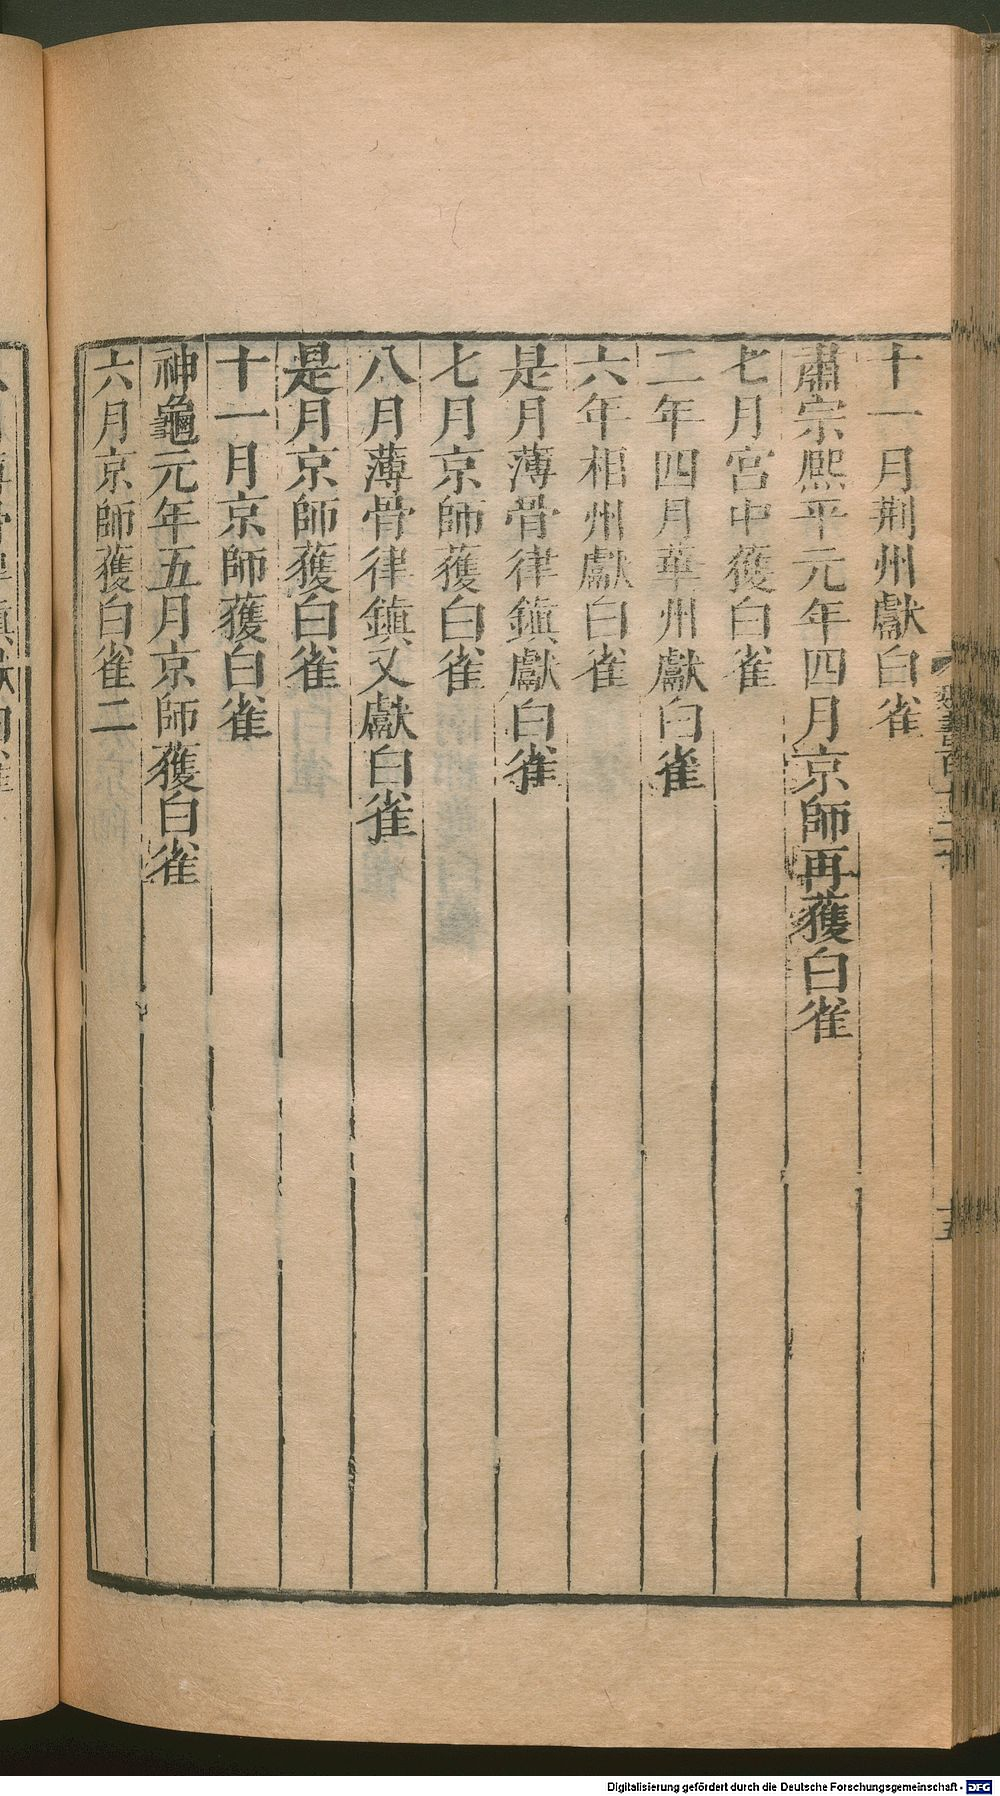 十一月荆州獻白雀
肅宗熙平元年四月京師再獲白雀
七月宮中獲白雀
二年四月華州獻白雀
六年相州獻白雀
是月薄骨律鎮獻白雀
七月京師獲白雀
八月薄骨律鎮又獻白雀
是月京師獲白雀
十一月京師獲白雀
神龜元年五月京師獲白雀
六月京師獲白雀二
Digitalisierung gefördert durch die Deutsche Forschungsgemeinschaft - DFG